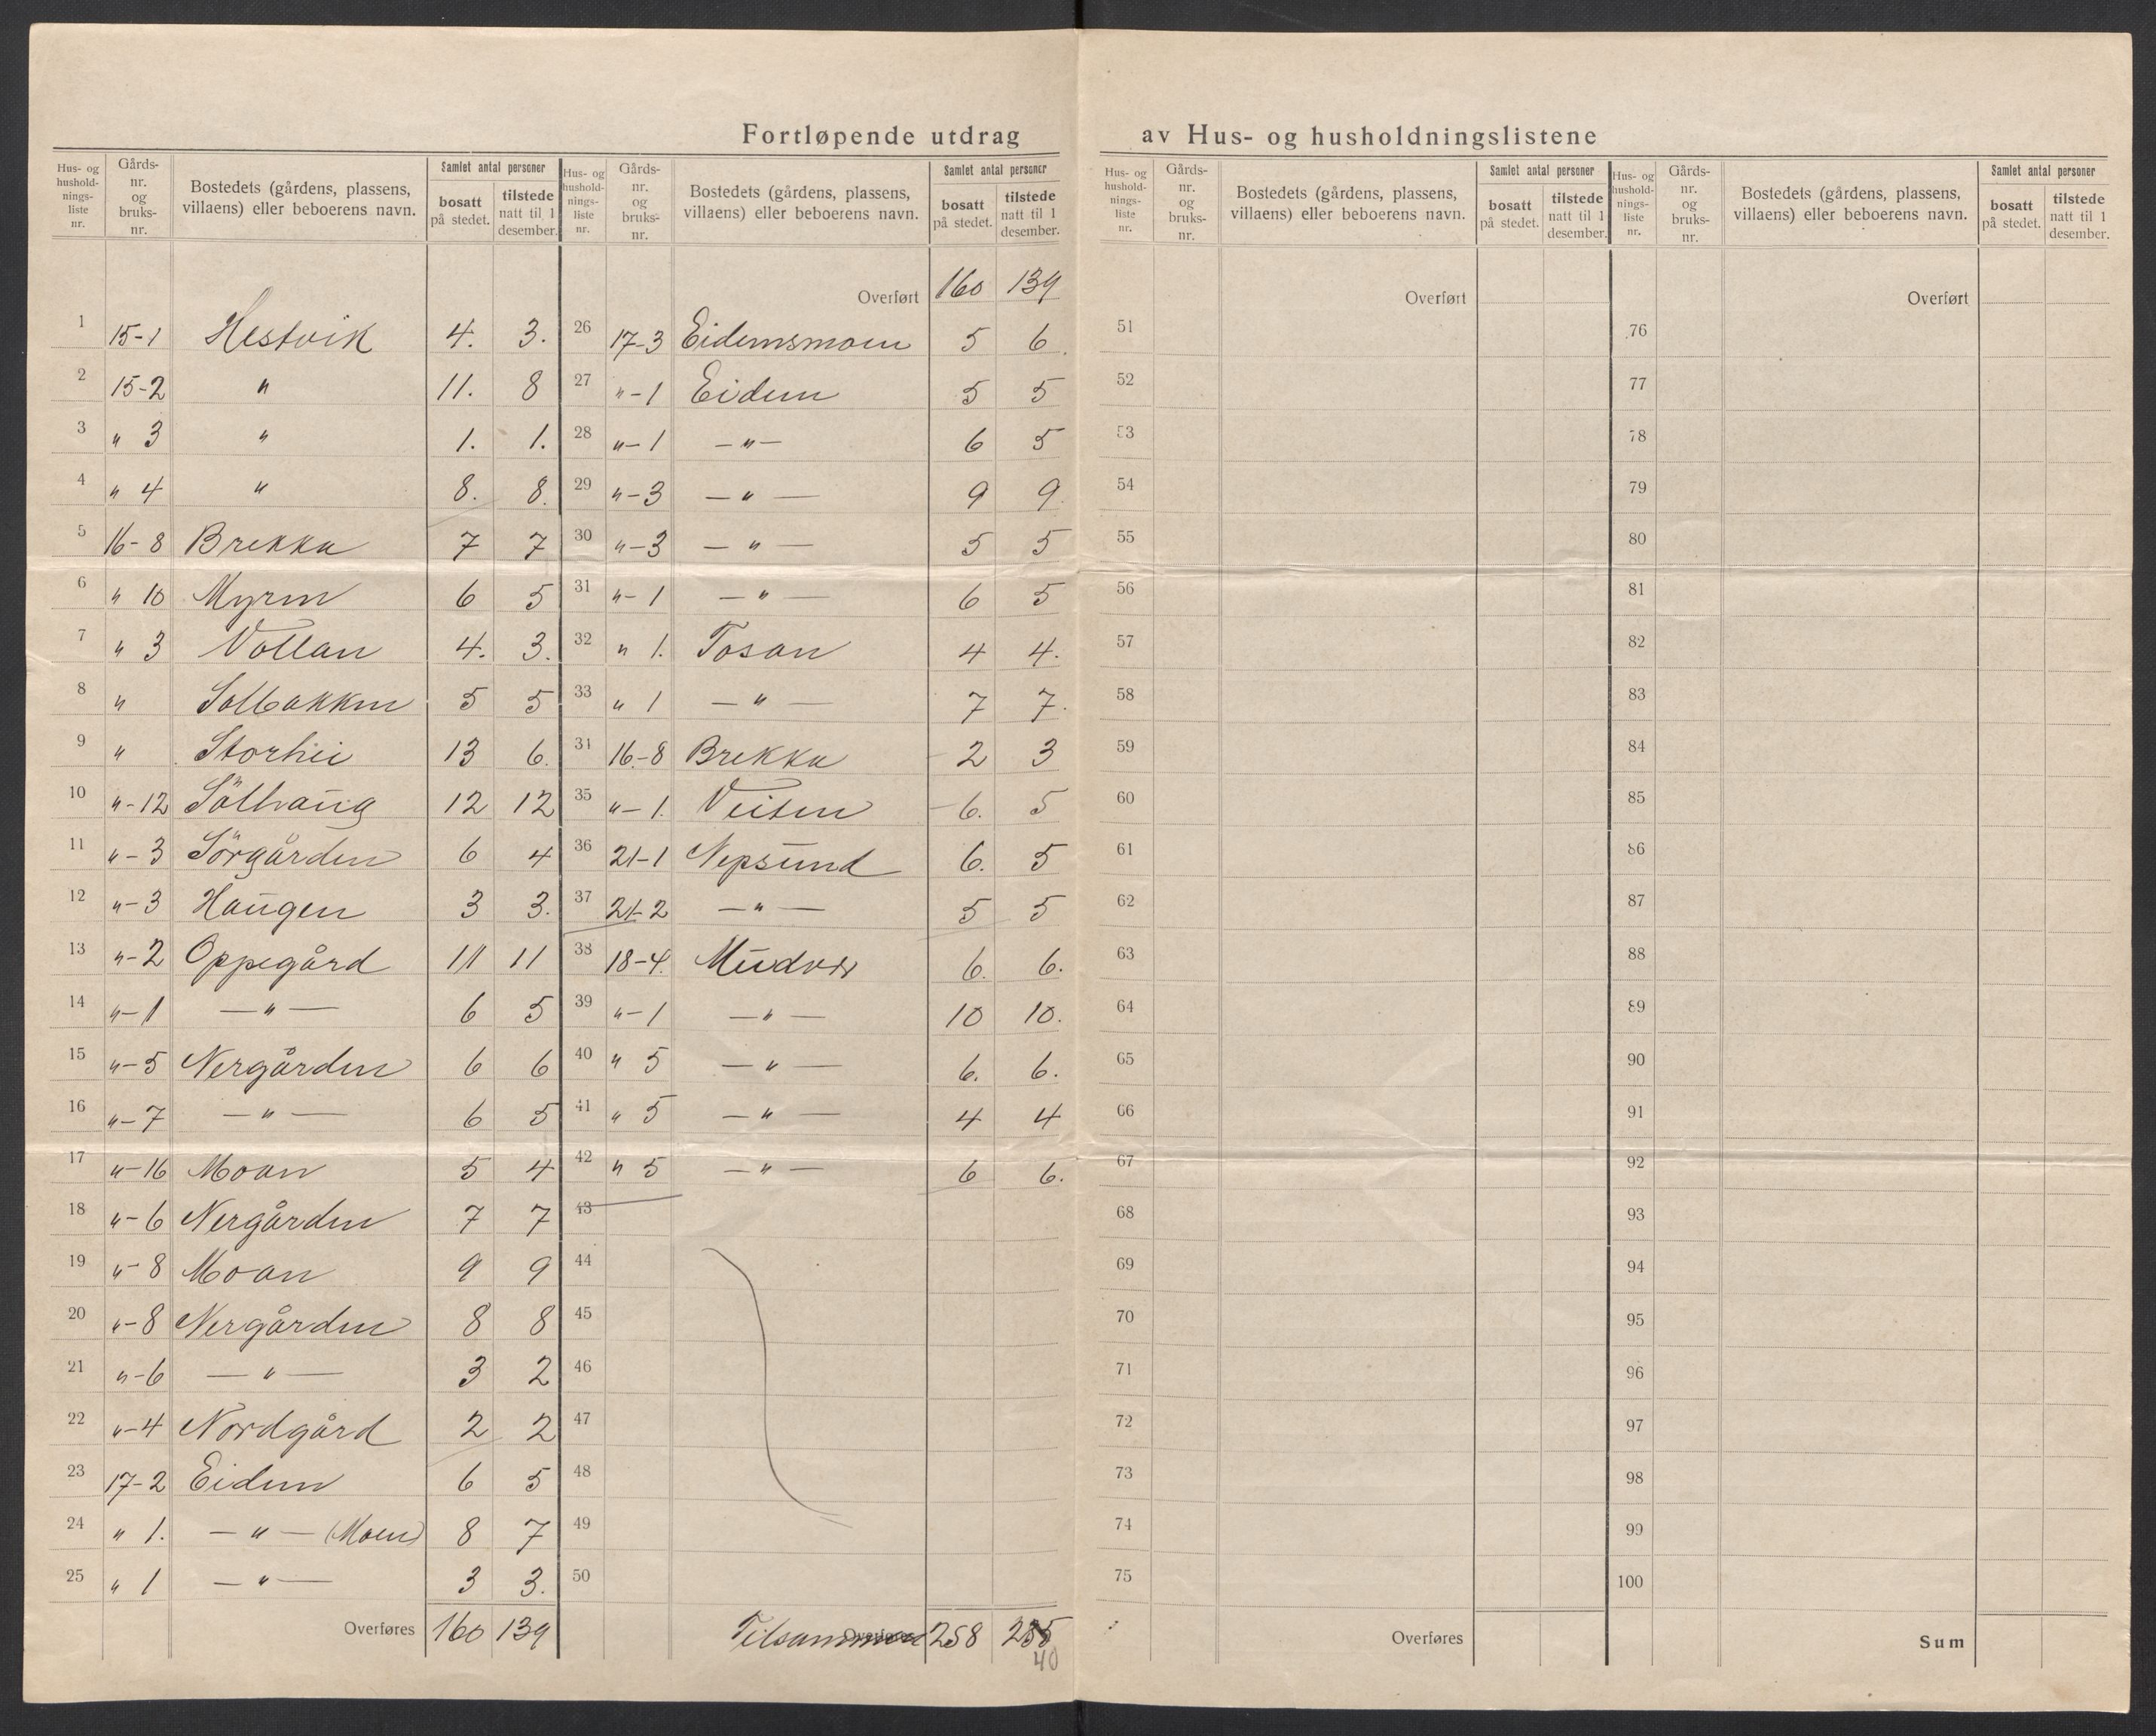 Fortløpende utdrag av Hus- og husholdningslistene
Hus- og hushold-nings-liste nr. | Gårds-nr. og bruks-nr. | Bostedets (gårdens, plassens, villaens) eller beboerens navn. | Samlet antal personer | bosatt på stedet. | tilstede natt til 1 desember.
1 15-1 Hestvik 4. 3.
2 15-2 " 11. 8
3 " 3 " 1. 1.
4 " 4 " 8. 8.
5 16-8 Brekka 7 7
6 " 10 Myren 6 5
7 " 3 Vollan 4. 3.
8 " Solbakken 5 5
9 " Storhei 13 6.
10 "-12 Sölhaug 12 12
11 "-3 Sörgården 6 4
12 "-3 Haugen 3 3.
13 "-2 Oppegård 11 11
14 "-1 —"— 6 5
15 "-5 Nergården 6 6
16 "-7 —"— 6 5
17 "-16 Moan 5 4
18 "-6 Nergården 7 7
19 "-8 Moan 9 9
20 "-8 Nergården 8 8
21 "-6 —"— 3 2
22 "-4 Nordgård 2 2
23 17-2 Eidem 6 5
24 " 1. —"— (Moen) 8 7
25 " 1 —"— 3 3.
Overføres 160 139
Hus- og hushold-nings-liste nr. | Gårds-nr. og bruks-nr. | Bostedets (gårdens, plassens, villaens) eller beboerens navn. | Samlet antal personer | bosatt på stedet. | tilstede natt til 1 desember.
Overført 160 139
26 17-3 Eidemsmoen 5 6.
27 "-1 Eidem 5 5
28 "-1 —"— 6 5
29 "-3 —"— 9 9.
30 "-3 —"— 5 5
31 "-1 —"— 6 5
32 " 1. Tosan 4 4.
33 " 1 —"— 7 7.
31 16-8 Brekka 2 3
35 "-1. Veiten 6. 5
36 21-1 Nepsund 6. 5
37 21-2 —"— 5 5
38 18-4. 6. 6.
39 "-1 —"— 10 10.
40 " 5 —"— 6. 6.
41 " 5 —"— 4 4
42 " 5 —"— 6 6.
43
44
45
46
47
48
49
50
Tilsammen Overføres 258 235
40
Hus- og hushold-nings-liste nr. | Gårds-nr. og bruks-nr. | Bostedets (gårdens, plassens, villaens) eller beboerens navn. | Samlet antal personer | bosatt på stedet. | tilstede natt til 1 desember.
Overført
51
52
53
54
55
56
57
58
59
60
61
62
63
64
65
66
67
68
69
70
71
72
73
74
75
Overføres
Hus- og hushold-nings-liste nr. | Gårds-nr. og bruks-nr. | Bostedets (gårdens, plassens, villaens) eller beboerens navn. | Samlet antal personer | bosatt på stedet. | tilstede natt til 1 desember.
Overført
76
77
78
79
80
81
82
83
84
85
86
87
88
89
90
91
92
93
94
95
96
97
98
99
100
Sum